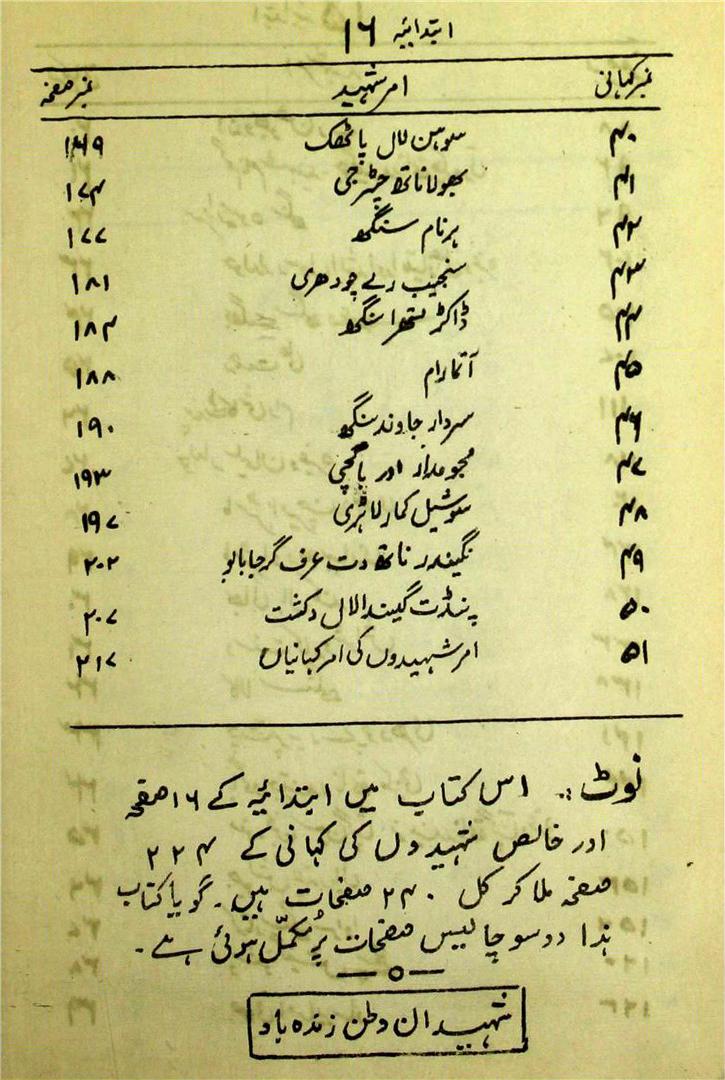 ابتدائیہ ۱۶
نمبر کہانی امر شہید نمبر صفحہ
۴۰ سوہن لال پاٹھک ۱۶۹
۴۱ بھولا ناتھ چٹرجی ۱۷۴
۴۲ ہرنام سنگھ ۱۷۷
۴۳ سنجیب رے چودھری ۱۸۱
۴۴ ڈاکٹر متھرا سنگھ ۱۸۴
۴۵ آتما رام ۱۸۸
۴۶ سردار جاوند سنگھ ۱۹۰
۴۷ مجومدار اور باگچی ۱۹۳
۴۸ سوشیل کمار لاہری ۱۹۷
۴۹ نگیندر ناتھ دت عرف گرجا بابو ۲۰۲
۵۰ پنڈت گیندا لال دکشت ۲۰۷
۵۱ امر شہیدوں کی امر کہانیاں ۲۱۷
نوٹ:۔ اس کتاب میں ابتدائیہ کے ۱۶ صفحہ
اور خالص شہیدوں کی کہانی کے ۲۲۴
صفحہ ملا کر کل ۲۴۰ صفحات ہیں۔ گویا کتاب
ہذا دو سو چالیس صفحات پر مُکمّل ہوئی ہے۔
شہیدان وطن زندہ باد